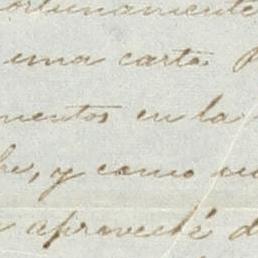 ortunamente
una carta
mentos en la
he, y como
aproveché d